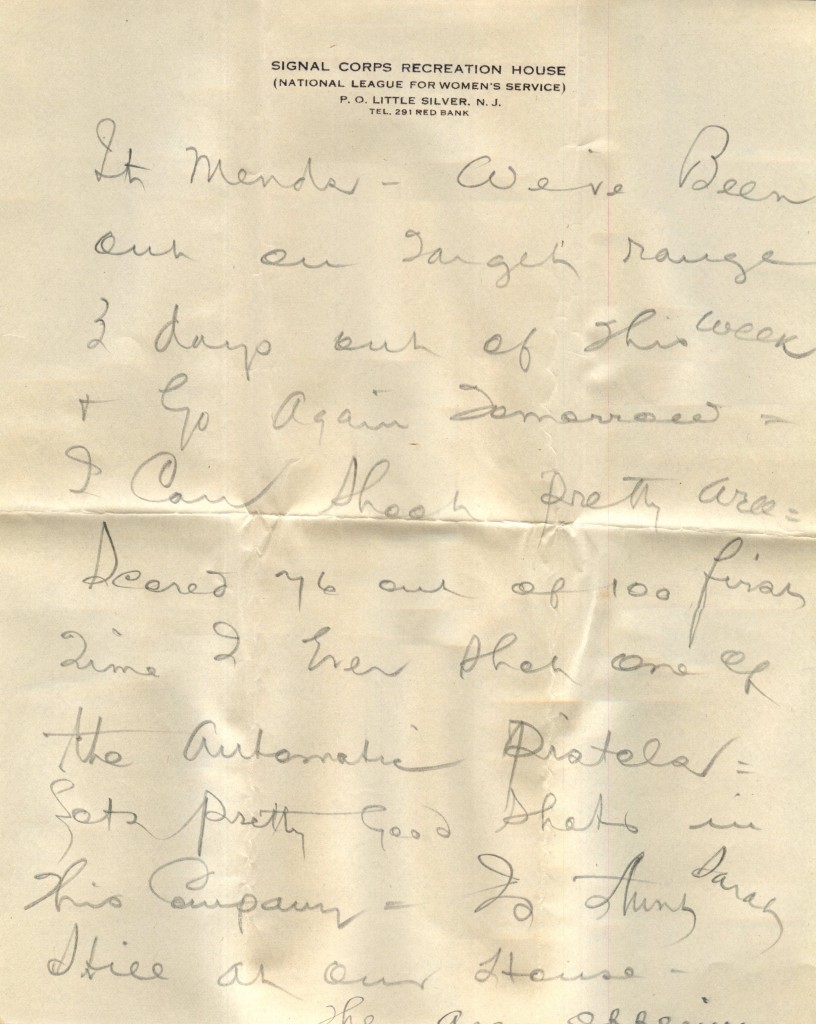 SIGNAL CORPS RECREATION HOUSE
(NATIONAL LEAGUE FOR WOMEN'S SERVICE)
P. O. LITTLE SILVER, N. J.
TEL. 291 RED BANK
It Mends - We've Been
out on Target range
3 days out of this week
+ Go Again Tomorrow =
I Can Shoot pretty well =
Scored 76 out of 100 first
Time I Ever Shot one of
the Automatic Pistols =
Lots pretty Good Shots in
This Company - Is Aunt Sarah
Still at our House -
The are